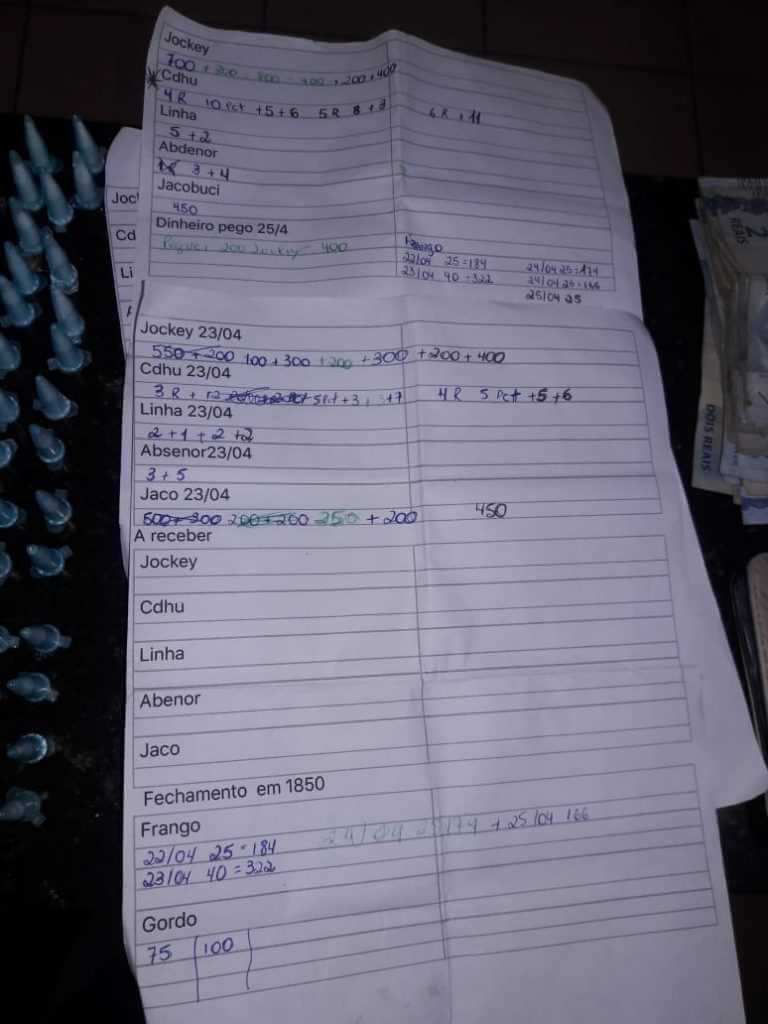 Jockey
700 + 300 800 400 + 200 + 400
Cdhu
4 R 10 Pct + 5 + 6 5 R 8 + 3 6 R + 11
Linha
5 + 2
Abdenor
3 + 4
Jacobuci
450
Dinheiro pego 25/4
Paguei 200 Jockey 400
Frango
22/04 25 = 184 24/04 25 = 174
23/04 40 = 322 24/04 25 = 166
25/04 25
Joc
Cd
Li
Jockey 23/04
550 + 200 100 + 300 + 200 + 300 + 200 + 400
Cdhu 23/04
3 R + 12 5 Pct + 3 + 3 + 7 4 R 5 Pct + 5 + 6
Linha 23/04
2 + 1 + 2 + 2
Absenor23/04
3 + 5
Jaco 23/04
500 + 300 200 + 200 250 + 200 450
A receber
Jockey
Cdhu
Linha
Abenor
Jaco
Fechamento em 1850
Frango
22/04 25 = 184 24/04 25 174 + 25/04 166
23/04 40 = 322
Gordo
75 100
2
REAIS
DOIS REAIS